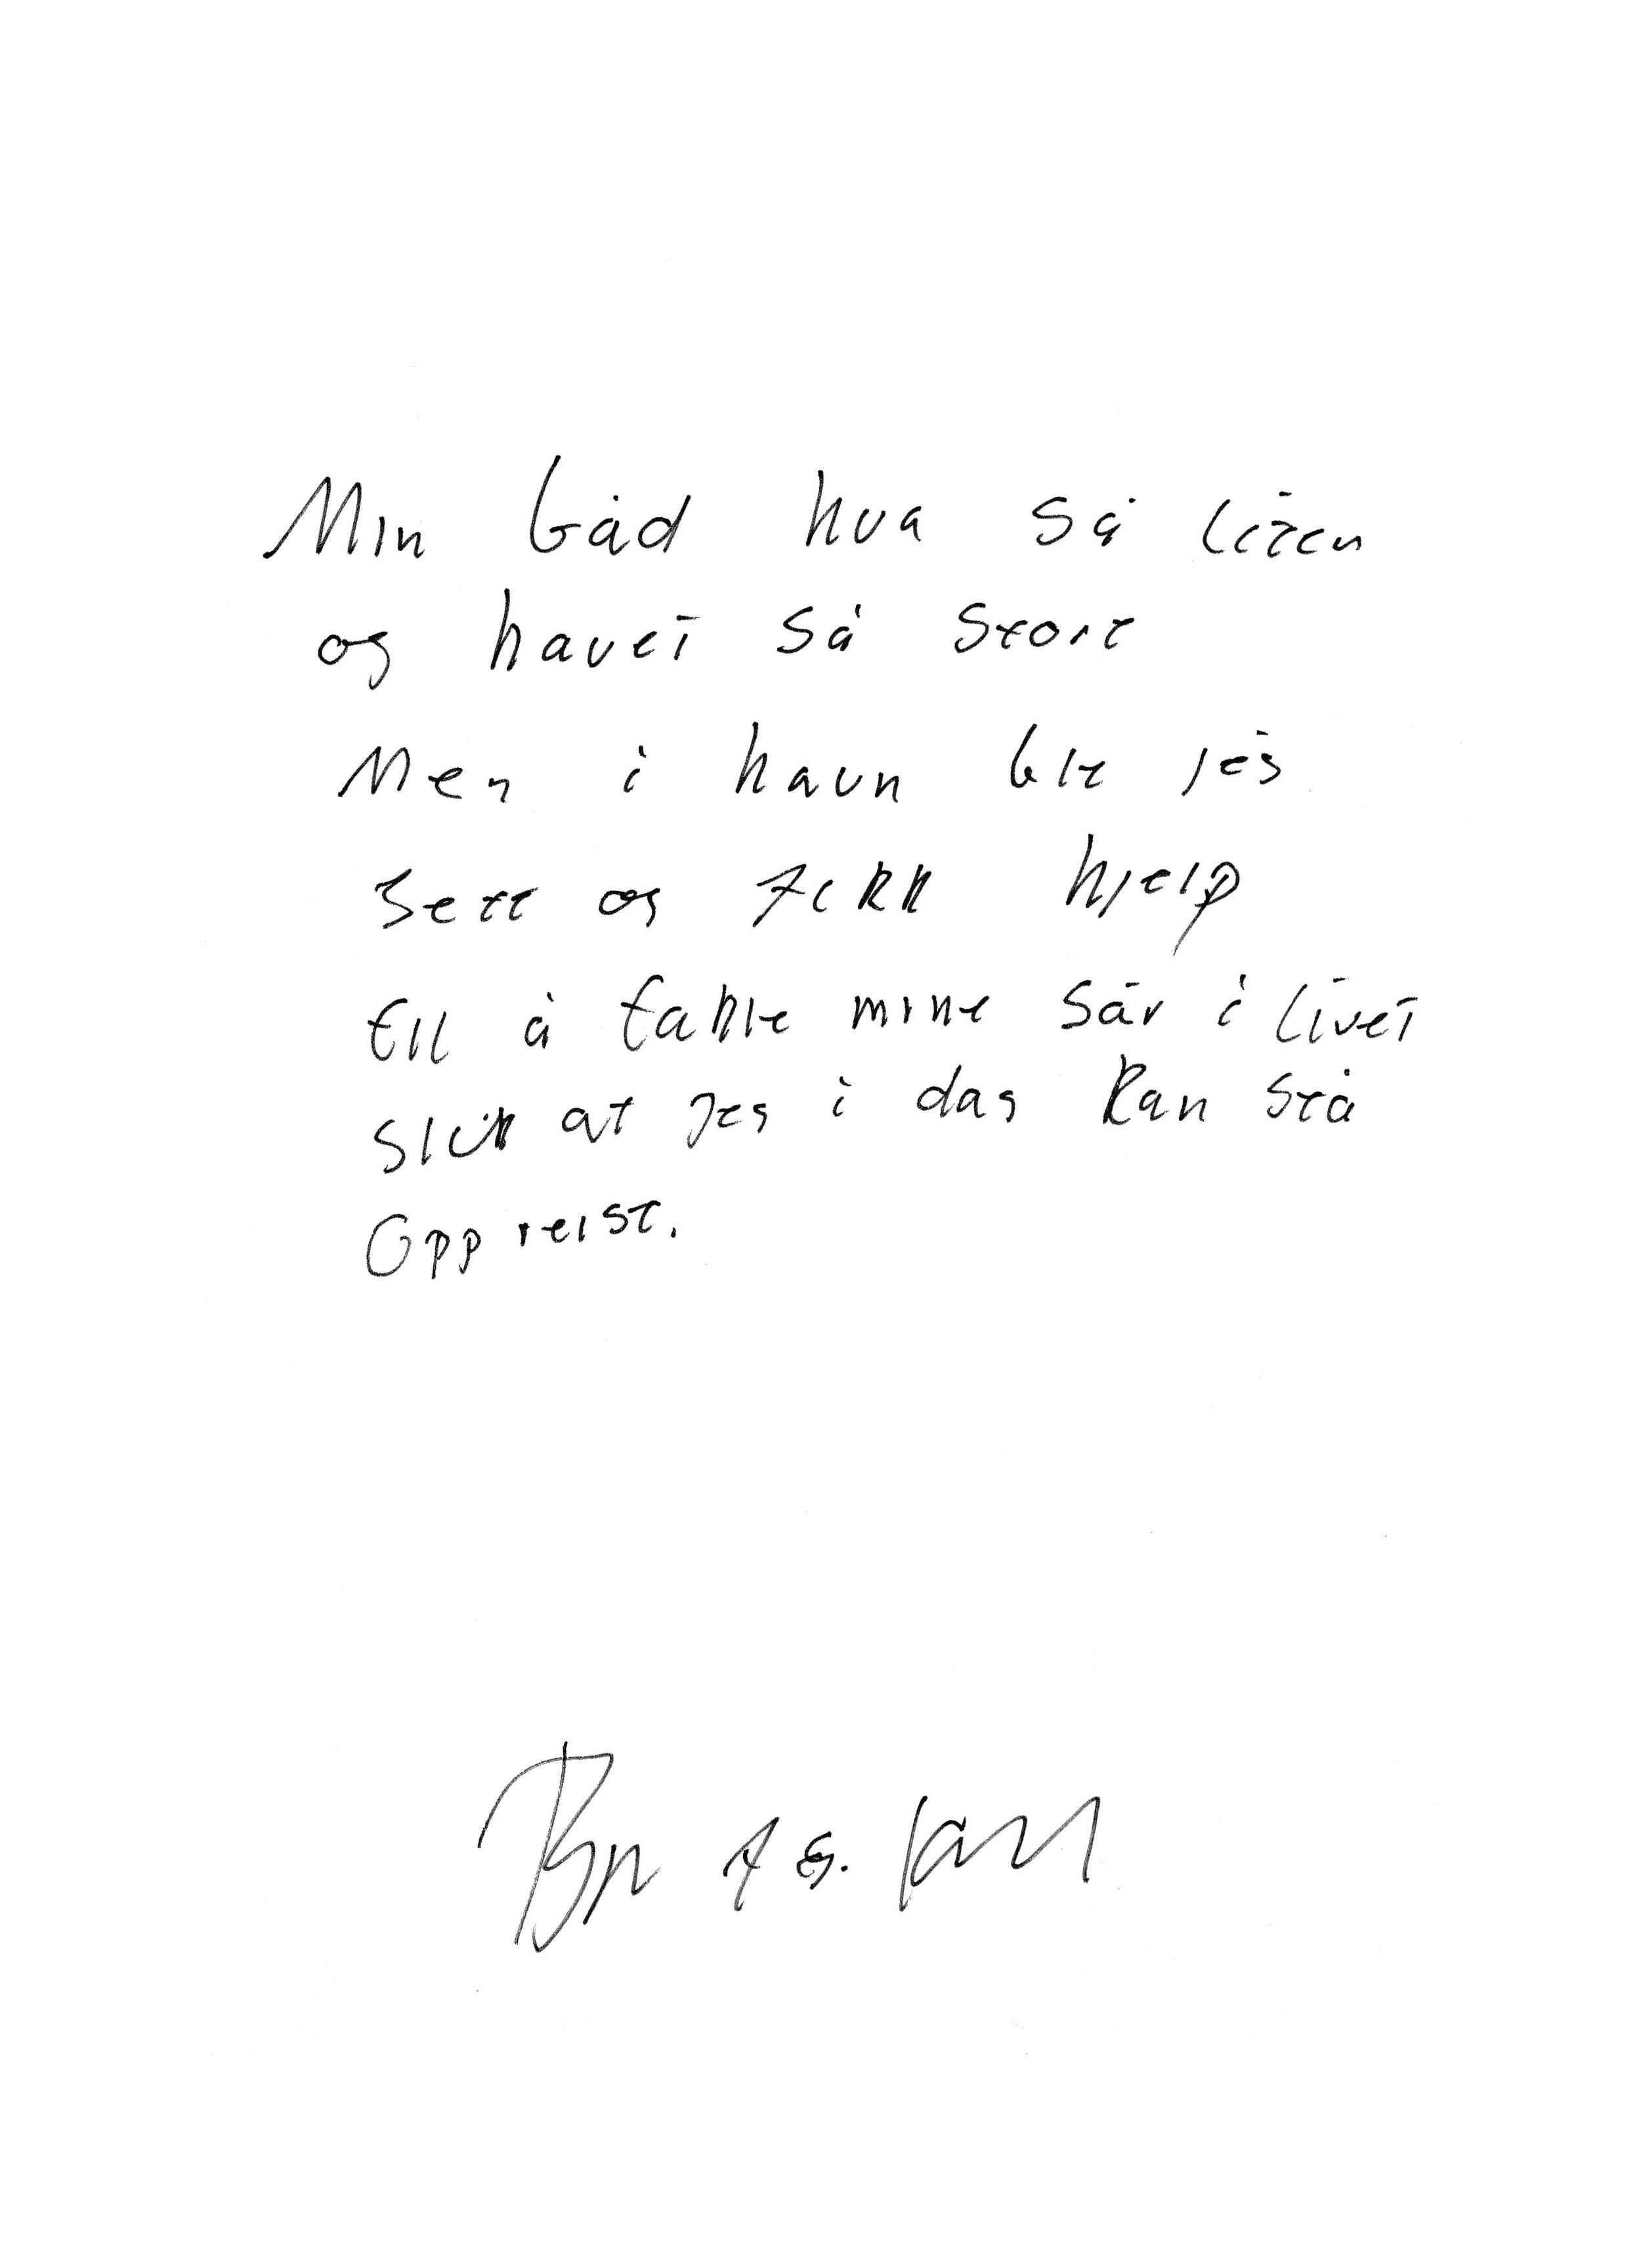 Min båd hva så liten
og havet så stort
Men i havn ble jeg
sett og fikk hjelp
till å takle mine sår i livet
slik at jeg i dag kan stå
Oppreist.